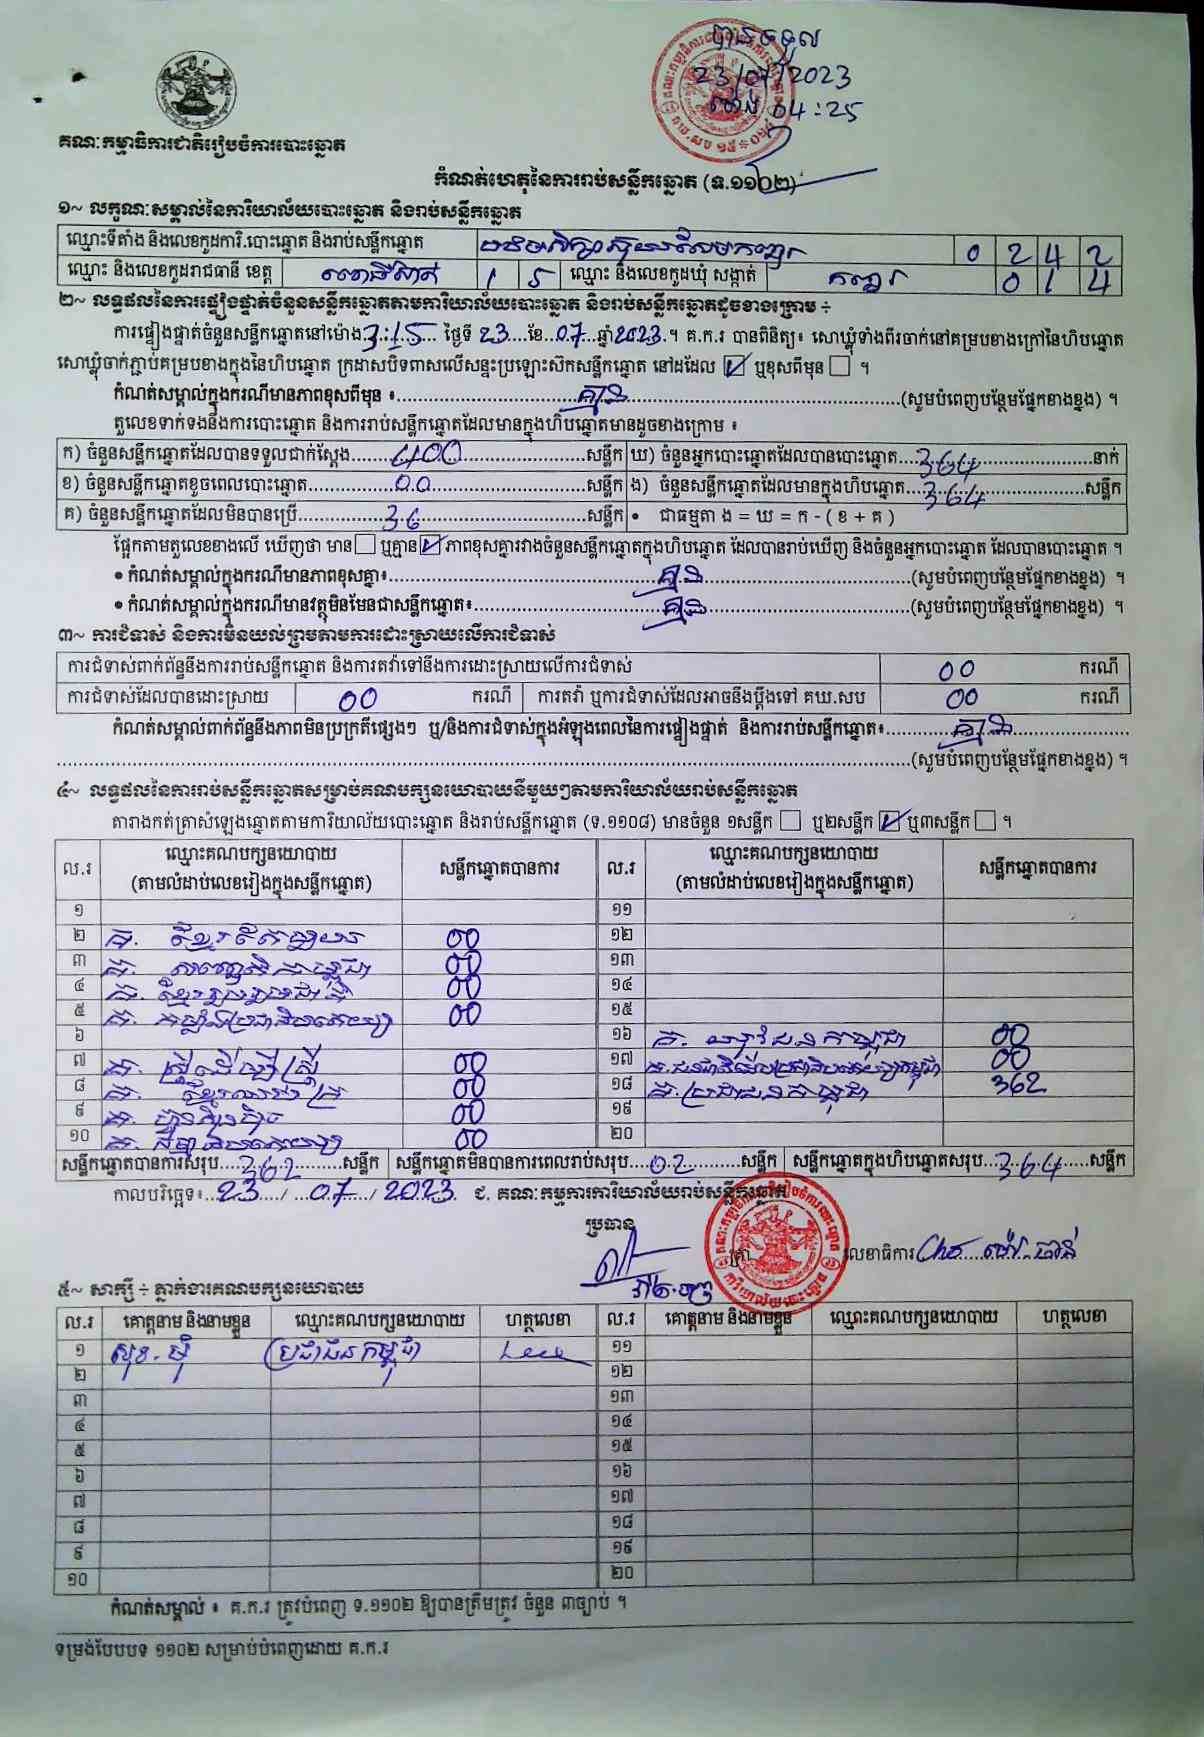 បានទទួល
23/07/2023
ម៉ោង 04:25
គណៈកម្មាធិការជាតិរៀបចំការបោះឆ្នោត
កំណត់ហេតុនៃការរាប់សន្លឹកឆ្នោត (ទ.១១០២)
១~ លក្ខណៈសម្គាល់នៃការិយាល័យបោះឆ្នោត និងរាប់សន្លឹកឆ្នោត
ឈ្មោះទីតាំង និងលេខកូដការិ.បោះឆ្នោត និងរាប់សន្លឹកឆ្នោត 0 2 4 2
ឈ្មោះ និងលេខកូដរាជធានី ខេត្ត ពោធិ៍សាត់ 1 5 ឈ្មោះ និងលេខកូដឃុំ សង្កាត់ កញ្ជរ 0 1 4
២~ លទ្ធផលនៃការផ្ទៀងផ្ទាត់ចំនួនសន្លឹកឆ្នោតតាមការិយាល័យបោះឆ្នោត និងរាប់សន្លឹកឆ្នោតដូចខាងក្រោម ÷
ការផ្ទៀងផ្ទាត់ចំនួនសន្លឹកឆ្នោតនៅម៉ោង 3:15 ថ្ងៃទី 23 ខែ 07 ឆ្នាំ 2023 ។ គ.ក.រ បានពិនិត្យ៖ សោឃ្លុំទាំងពីរចាក់នៅគម្របខាងក្រៅនៃហិបឆ្នោត
សោឃ្លុំចាក់ភ្ជាប់គម្របខាងក្នុងនៃហិបឆ្នោត ក្រដាសបិទពាសលើសន្ទះប្រឡោះស៊កសន្លឹកឆ្នោត នៅដដែល ☑ ឬខុសពីមុន ☐ ។
កំណត់សម្គាល់ក្នុងករណីមានភាពខុសពីមុន ៖ គ្មាន (សូមបំពេញបន្ថែមផ្នែកខាងខ្នង) ។
តួលេខទាក់ទងនឹងការបោះឆ្នោត និងការរាប់សន្លឹកឆ្នោតដែលមានក្នុងហិបឆ្នោតមានដូចខាងក្រោម ៖
ក) ចំនួនសន្លឹកឆ្នោតដែលបានទទួលជាក់ស្តែង 400 សន្លឹក ឃ) ចំនួនអ្នកបោះឆ្នោតដែលបានបោះឆ្នោត 364 នាក់
ខ) ចំនួនសន្លឹកឆ្នោតខូចពេលបោះឆ្នោត 00 សន្លឹក ង) ចំនួនសន្លឹកឆ្នោតដែលមានក្នុងហិបឆ្នោត 364 សន្លឹក
គ) ចំនួនសន្លឹកឆ្នោតដែលមិនបានប្រើ 36 សន្លឹក • ជាធម្មតា ង = ឃ = ក - ( ខ + គ )
ផ្អែកតាមតួលេខខាងលើ ឃើញថា មាន ☐ ឬគ្មាន ☑ ភាពខុសគ្នារវាងចំនួនសន្លឹកឆ្នោតក្នុងហិបឆ្នោត ដែលបានរាប់ឃើញ និងចំនួនអ្នកបោះឆ្នោត ដែលបានបោះឆ្នោត ។
• កំណត់សម្គាល់ក្នុងករណីមានភាពខុសគ្នា៖ គ្មាន (សូមបំពេញបន្ថែមផ្នែកខាងខ្នង) ។
• កំណត់សម្គាល់ក្នុងករណីមានវត្ថុមិនមែនជាសន្លឹកឆ្នោត៖ គ្មាន (សូមបំពេញបន្ថែមផ្នែកខាងខ្នង) ។
៣~ ការជំទាស់ និងការមិនយល់ព្រមតាមការដោះស្រាយលើការជំទាស់
ការជំទាស់ពាក់ព័ន្ធនឹងការរាប់សន្លឹកឆ្នោត និងការតវ៉ាទៅនឹងការដោះស្រាយលើការជំទាស់ 00 ករណី
ការជំទាស់ដែលបានដោះស្រាយ 00 ករណី ការតវ៉ា ឬការជំទាស់ដែលអាចនឹងប្តឹងទៅ គឃ.សប 00 ករណី
កំណត់សម្គាល់ពាក់ព័ន្ធនឹងភាពមិនប្រក្រតីផ្សេងៗ ឬ/និងការជំទាស់ក្នុងអំឡុងពេលនៃការផ្ទៀងផ្ទាត់ និងការរាប់សន្លឹកឆ្នោត៖ គ្មាន
(សូមបំពេញបន្ថែមផ្នែកខាងខ្នង) ។
៤~ លទ្ធផលនៃការរាប់សន្លឹកឆ្នោតសម្រាប់គណបក្សនយោបាយនីមួយៗតាមការិយាល័យរាប់សន្លឹកឆ្នោត
តារាងកត់ត្រាសំឡេងឆ្នោតតាមការិយាល័យបោះឆ្នោត និងរាប់សន្លឹកឆ្នោត (ទ.១១០៨) មានចំនួន ១សន្លឹក ☐ ឬ២សន្លឹក ☑ ឬ៣សន្លឹក ☐ ។
ល.រ ឈ្មោះគណបក្សនយោបាយ (តាមលំដាប់លេខរៀងក្នុងសន្លឹកឆ្នោត) សន្លឹកឆ្នោតបានការ ល.រ ឈ្មោះគណបក្សនយោបាយ (តាមលំដាប់លេខរៀងក្នុងសន្លឹកឆ្នោត) សន្លឹកឆ្នោតបានការ
១ ១១
២ គ. ខ្មែរ 00 ១២
៣ គ. 00 ១៣
៤ គ. ខ្មែររួបរួមជាតិ 00 ១៤
៥ គ. កម្លាំងប្រជាធិបតេយ្យ 00 ១៥
៦ ១៦ គ. យុវជនកម្ពុជា 00
៧ គ. ស្ត្រីដើម្បីស្ត្រី 00 ១៧ គ. 00
៨ គ. ខ្មែរ 00 ១៨ គ. ប្រជាជនកម្ពុជា 362
៩ គ. ហ៊្វុនស៊ិនប៉ិច 00 ១៩
១០ គ. 00 ២០
សន្លឹកឆ្នោតបានការសរុប 362 សន្លឹក សន្លឹកឆ្នោតមិនបានការពេលរាប់សរុប 02 សន្លឹក សន្លឹកឆ្នោតក្នុងហិបឆ្នោតសរុប 364 សន្លឹក
កាលបរិច្ឆេទ៖ 23 / 07 / 2023 ជ. គណៈកម្មការការិយាល័យរាប់សន្លឹកឆ្នោត
ប្រធាន
ត្រា លេខាធិការ
៥~ សាក្សី ÷ ភ្នាក់ងារគណបក្សនយោបាយ
ល.រ គោត្តនាម និងនាមខ្លួន ឈ្មោះគណបក្សនយោបាយ ហត្ថលេខា ល.រ គោត្តនាម និងនាមខ្លួន ឈ្មោះគណបក្សនយោបាយ ហត្ថលេខា
១ ប្រជាជនកម្ពុជា ១១
២ ១២
៣ ១៣
៤ ១៤
៥ ១៥
៦ ១៦
៧ ១៧
៨ ១៨
៩ ១៩
១០ ២០
កំណត់សម្គាល់ ៖ គ.ក.រ ត្រូវបំពេញ ទ.១១០២ ឱ្យបានត្រឹមត្រូវ ចំនួន ៣ច្បាប់ ។
ទម្រង់បែបបទ ១១០២ សម្រាប់បំពេញដោយ គ.ក.រ